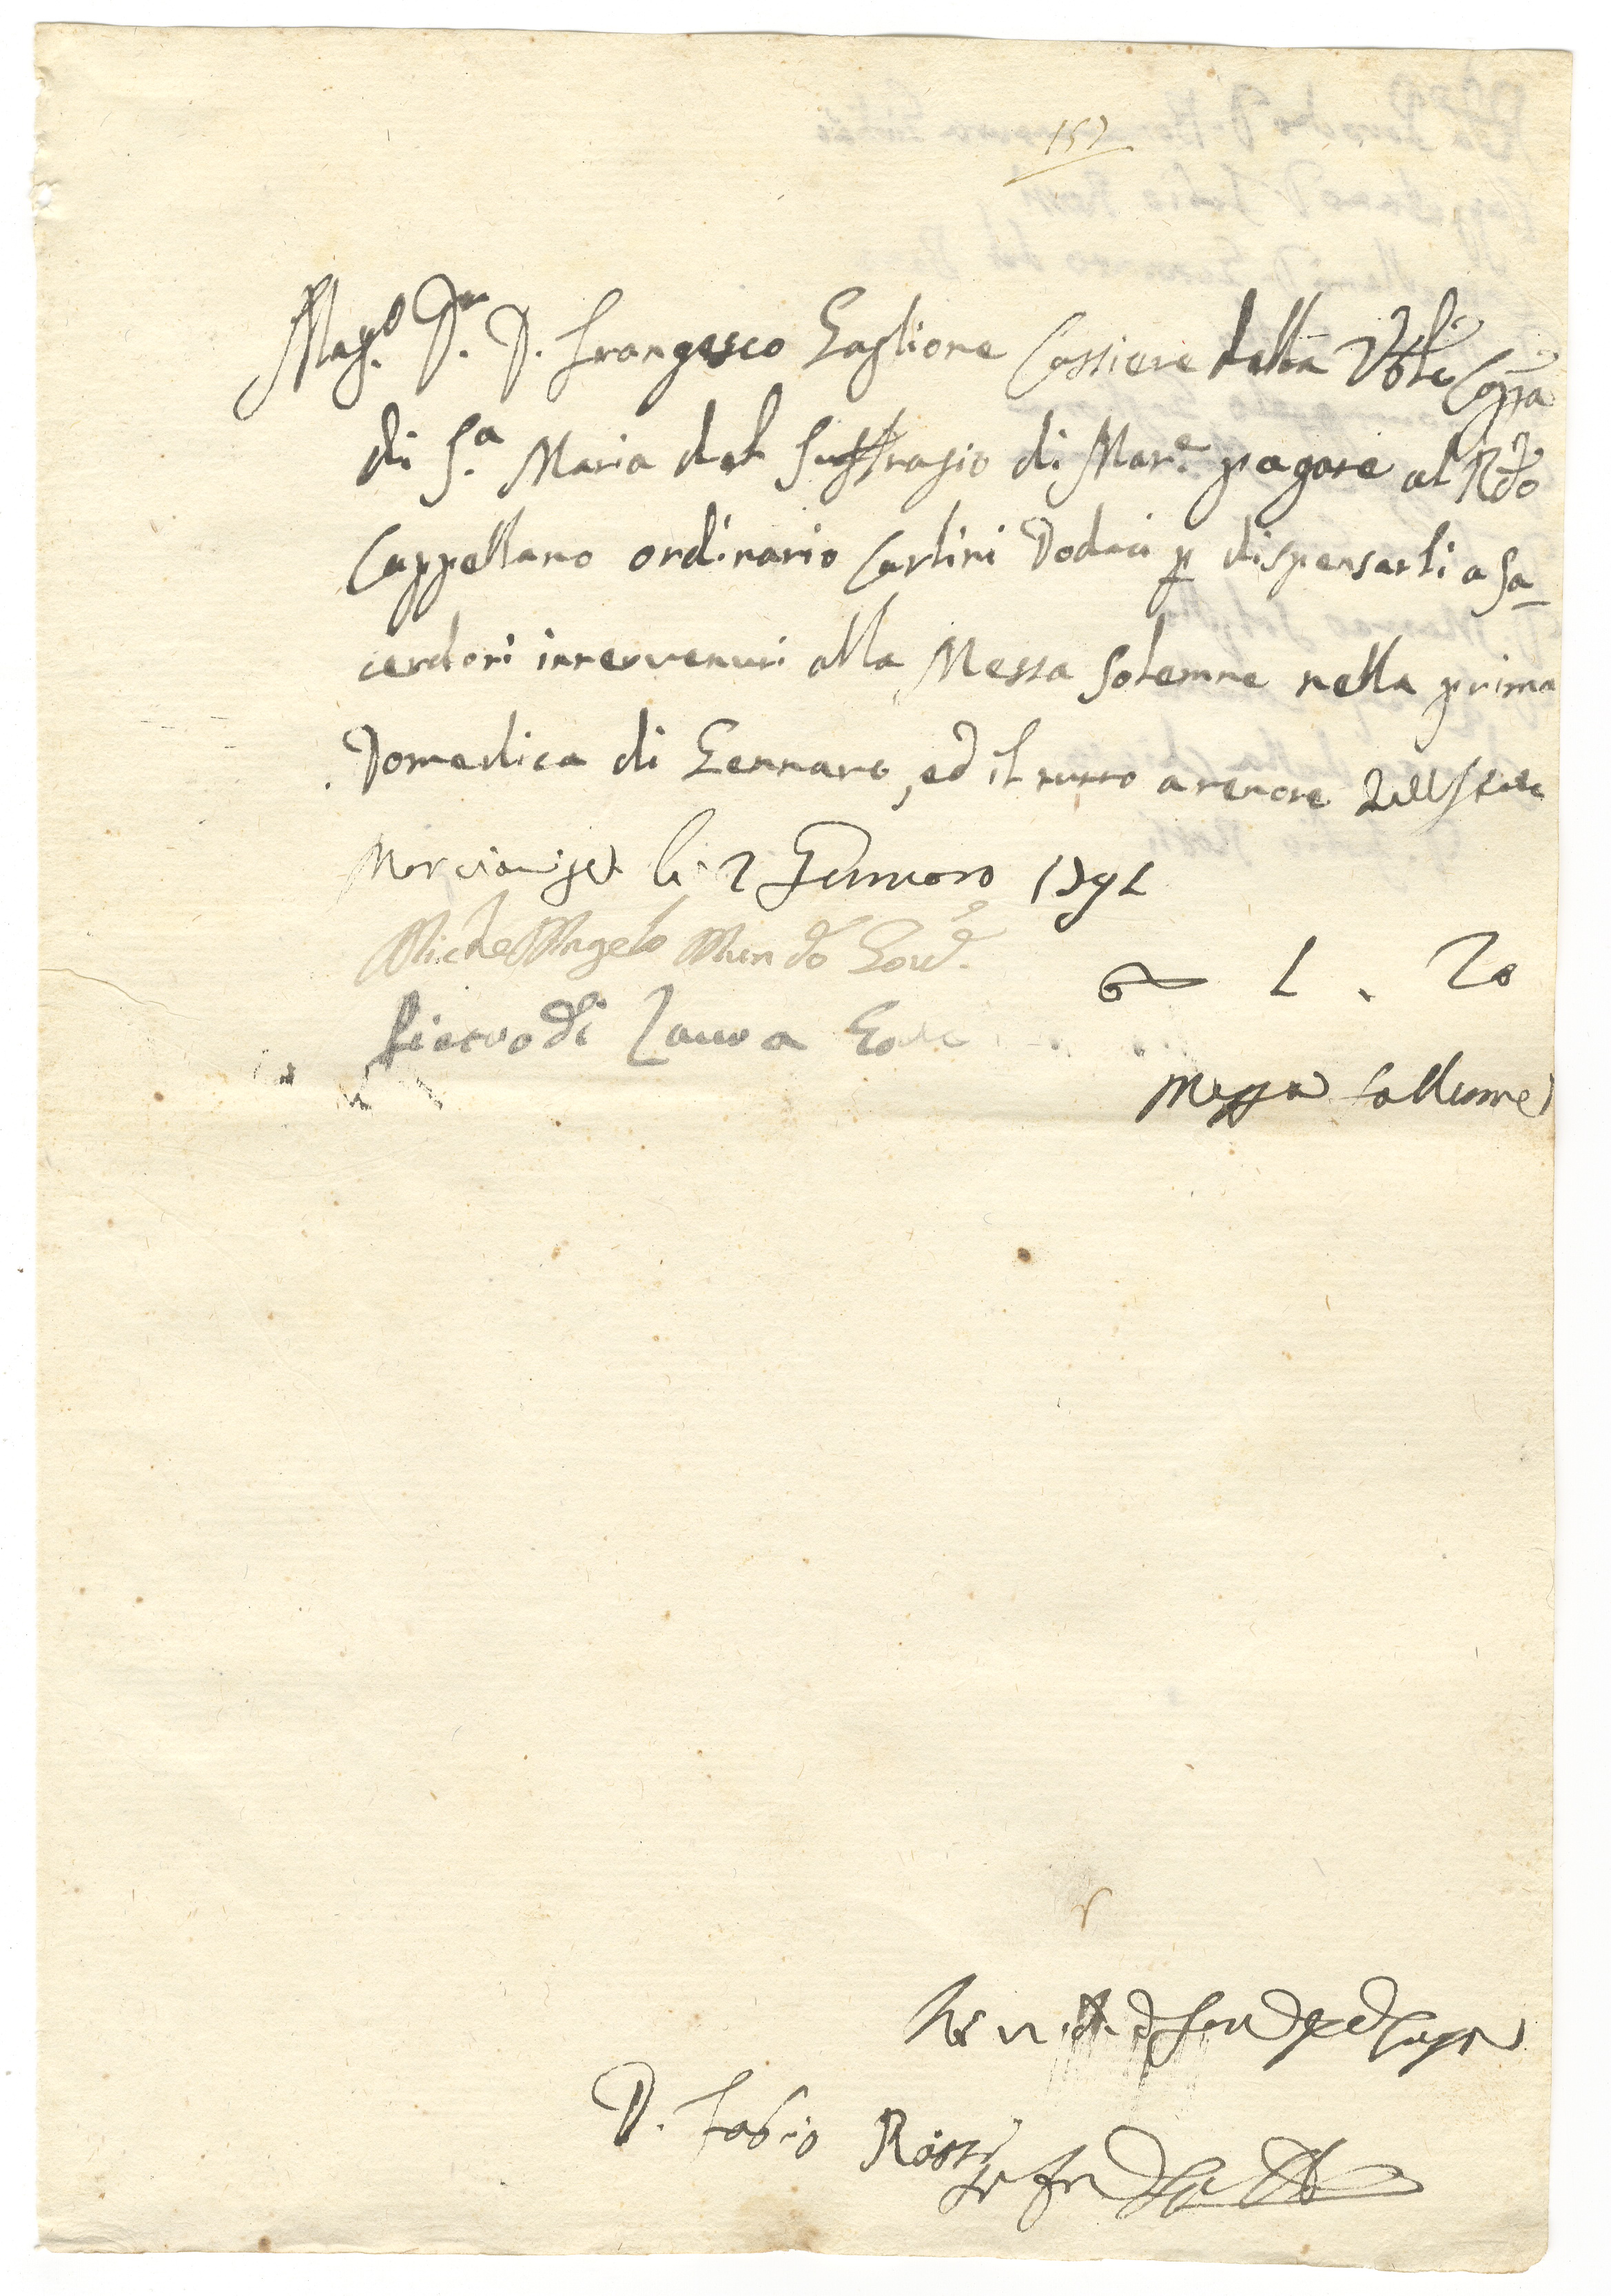 157
Mag.o Dr. D. Frangesco Gaglione Cassiere della Vble Cogna
di S.a Maria del Suffragio di Mar.e pagare al Rdo
Cappellano ordinario Carlini Dodaci p dispensarli a Sa-
cerdoti intervenuti alla Messa Solemne nella prima
Domedica di Gennaro, ed il tutto a tenore dello Stato
Marcianise li 2 Gennaro 1791
Michel'Angelo Mundo Gov.e
Pietro di Laura Gov
1 . 20
Messa Sollenne
D. Fabio Rossi